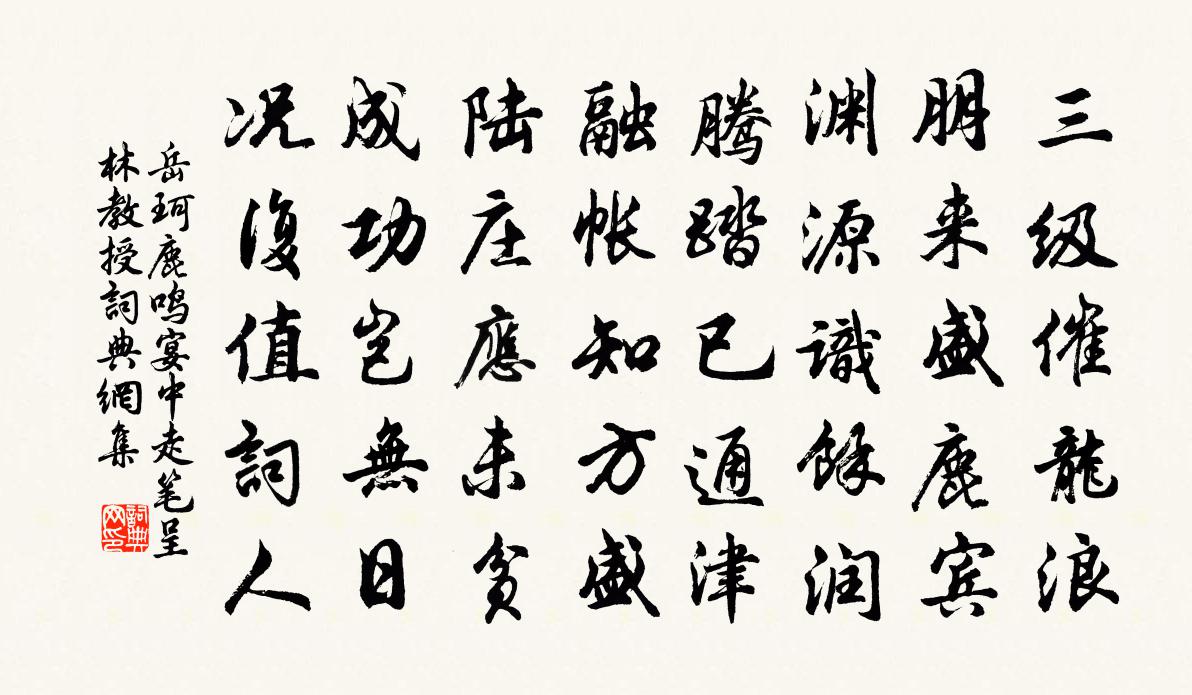 三级催龍浪
朋来盛鹿宾
渊源識餘润
腾踏已通津
融帐知方盛
陆庄應未贫
成功岂無日
况復值詞人
岳珂鹿鸣宴中走笔呈
林教授詞典網集
詞典网印